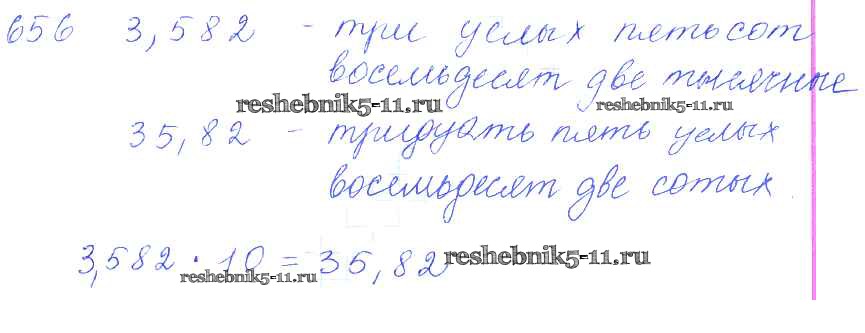 656 3,582 - три целых пятьсот
восемьдесят две тысячные
reshebnik5-11.ru reshebnik5-11.ru
35,82 - тридцать пять целых
восемьдесят две сотых
3,582 · 10 = 35,82 reshebnik5-11.ru
reshebnik5-11.ru